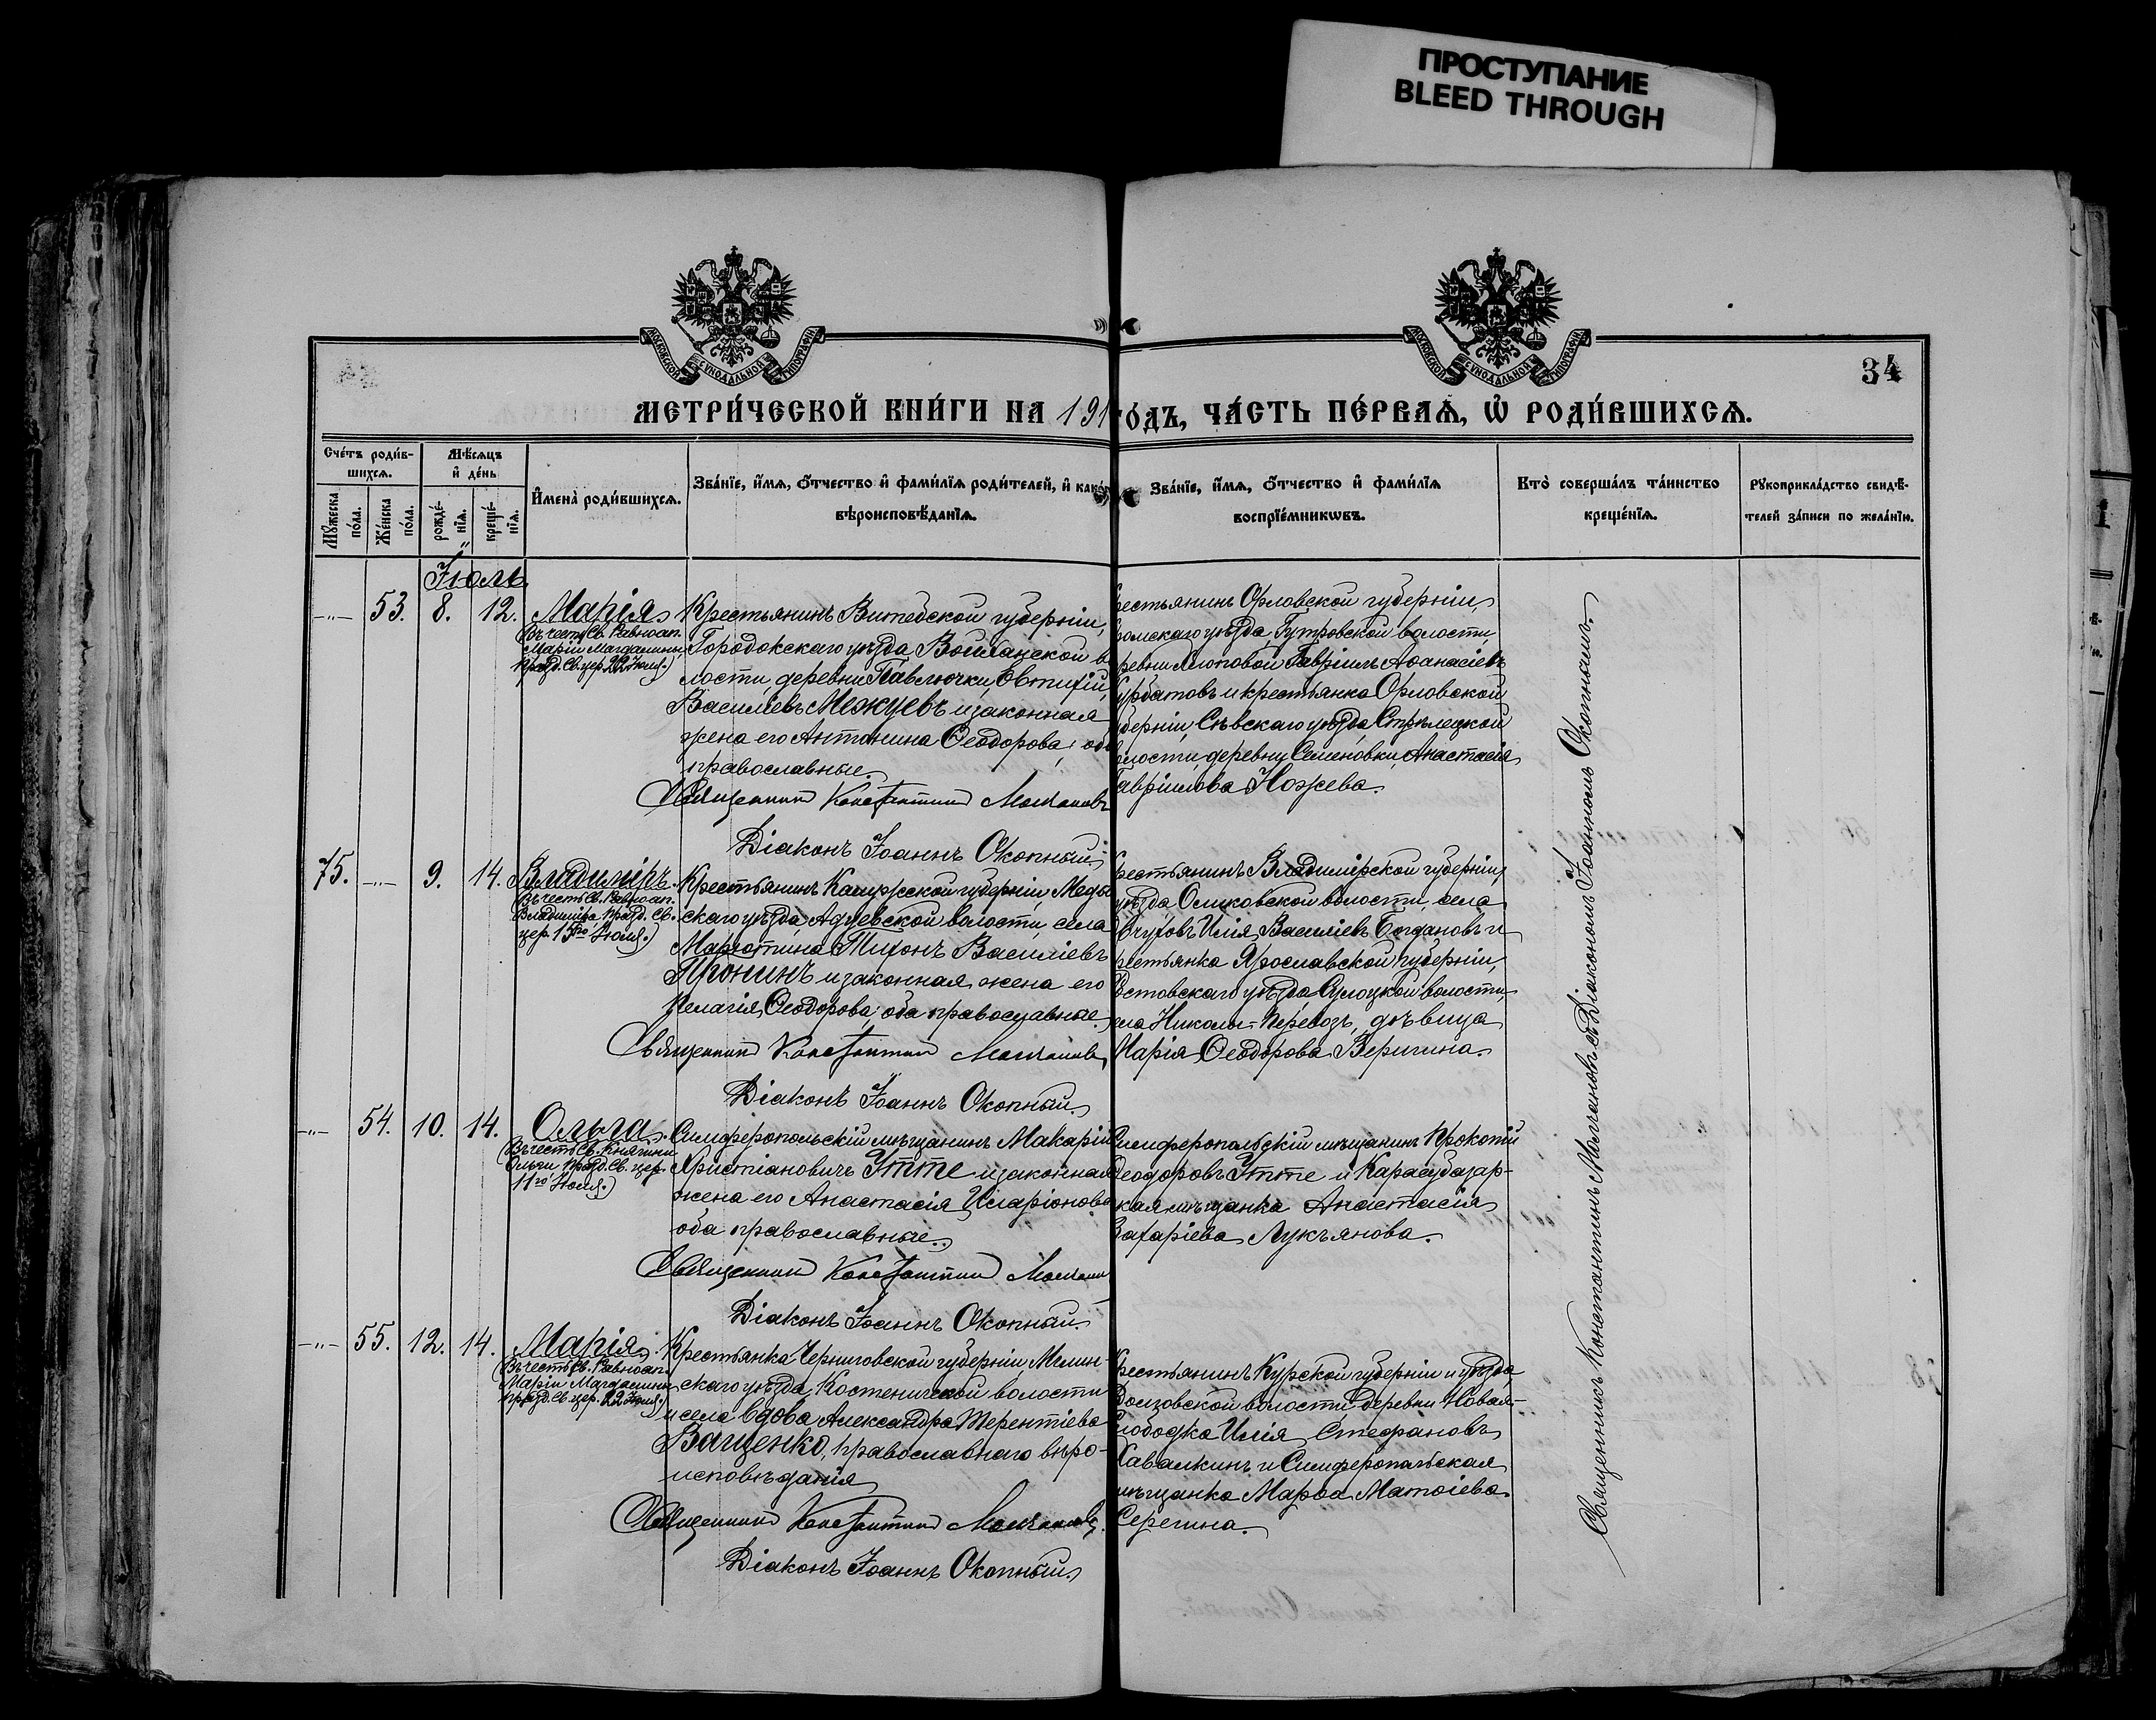 ПРОСТУПАНИЕ
BLEED THROUGH
МОСКОВСКОЙ СѴНОДАЛЬНОЙ ТИПОГРАФІИ
МОСКОВСКОЙ СѴНОДАЛЬНОЙ ТИПОГРАФІИ
34
МЕТРИ́ЧЕСКОЙ КНИ́ГИ НА 191
ГО́ДЪ, ЧА́СТЬ ПЕ́РВАѦ, Ѡ РОДИ́ВШИХСѦ.
Сче́тъ роди́в-
шихсѧ.
Мꙋжеска по́ла.
Же́нска по́ла.
Мѣ́сѧцъ
и҆ де́нь
рожде́-
нїѧ.
креще́-
нїѧ.
И҆мена̀ роди́вшихсѧ.
Зва́нїе, и҆́мѧ, ѻ҆́тчество и҆ фами́лїѧ роди́телей, и҆ како́
вѣроисповѣ́данїѧ.
Зва́нїе, и҆́мѧ, ѻ҆́тчество и҆ фами́лїѧ
воспрїе́мникѡвъ.
Кто̀ соверша́лъ та́инство
креще́нїѧ.
Рꙋкоприкла́дство свидѣ́-
телей за́писи по жела́нїю.
Іюль
53. 8. 12. Марія
(Въ честь Св. Равноап.
Маріи Магдалины
празд. Св. цер. 22 Іюля.)
Крестьянинъ Витебской губерніи,
Городокскаго уѣзда, Войханской во
лости, деревни Павлючки, Евтихій
Василіевъ Межуевъ и законная
жена его Антонина Ѳеодорова, оба
православные.
Священникъ Константинъ Молчановъ
Діаконъ Іоаннъ Окопный.
рестьянинъ Орловской губерніи,
ромскаго уѣзда, Гутровской волости
ревни Гавріилъ Аѳанасіевъ
Курбатовъ и крестьянка Орловской
уберніи, Сѣвскаго уѣзда, Стрѣлецкой
олости, деревни Семеновки, Анастасія
Гавріилова Ножева.
75. 9. 14. Владиміръ.
(Въ честь Св. Равноап.
Владиміра празд. Св.
цер. 15го Іюля.)
Крестьянинъ Калужской губерніи, Меды
скаго уѣзда, Адуевской волости, села
Марютина Тихонъ Василіевъ
Пронинъ и законная жена его
Пелагія Ѳеодорова, оба православные.
Священникъ Константинъ Молчановъ
Діаконъ Іоаннъ Окопный.
рестьянинъ Владимірской губерніи,
уѣзда волости, села
Илія Василіевъ Богдановъ и
рестьянка Ярославской губерніи,
Ростовскаго уѣзда, Сулоцкой волости,
ела Николы-Перевозъ, дѣвица
Марія Ѳеодорова Веригина.
54. 10. 14. Ольга.
(Въ честь Св. Княгини
Ольги празд. Св. цер.
11го Іюля.)
Симферопольскій мѣщанинъ Макарій
Христіановичъ Утте и законная
жена его Анастасія Иларіонова
оба православные.
Священникъ Константинъ Молчановъ
Діаконъ Іоаннъ Окопный.
Симферопольскій мѣщанинъ Прокопій
Ѳеодоровъ Утте и Карасубазар-
кая мѣщанка Анастасія
Захаріева Лукъянова.
55. 12. 14. Марія.
(Въ честь Св. Равноап.
Маріи Магдалины
празд. Св. цер. 22 Іюля.)
Крестьянка Черниговской губерніи, Мглин-
скаго уѣзда, Костеничской волости
и села вдова Александра Терентіева
Ващенко, православнаго вѣро-
исповѣданія
Священникъ Константинъ Молчановъ
Діаконъ Іоаннъ Окопный.
Крестьянинъ Курской губерніи и уѣзда
волости деревни Новая-
лободка Илія Стефановъ
Кавалкинъ и Симферопольская
мѣщанка Марѳа Матѳіева
Серегина.
Священникъ Константинъ Молчановъ съ Діакономъ Іоанномъ Окопнымъ.